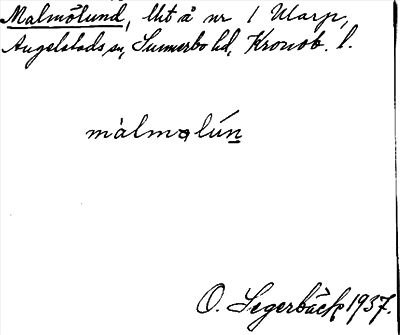 Malmölund, lht å nr 1 Ularp,
Angelstads sn, Sunnerbo hd, Kronob. l.
màlmɷlún
O. Segerbäck 1937.